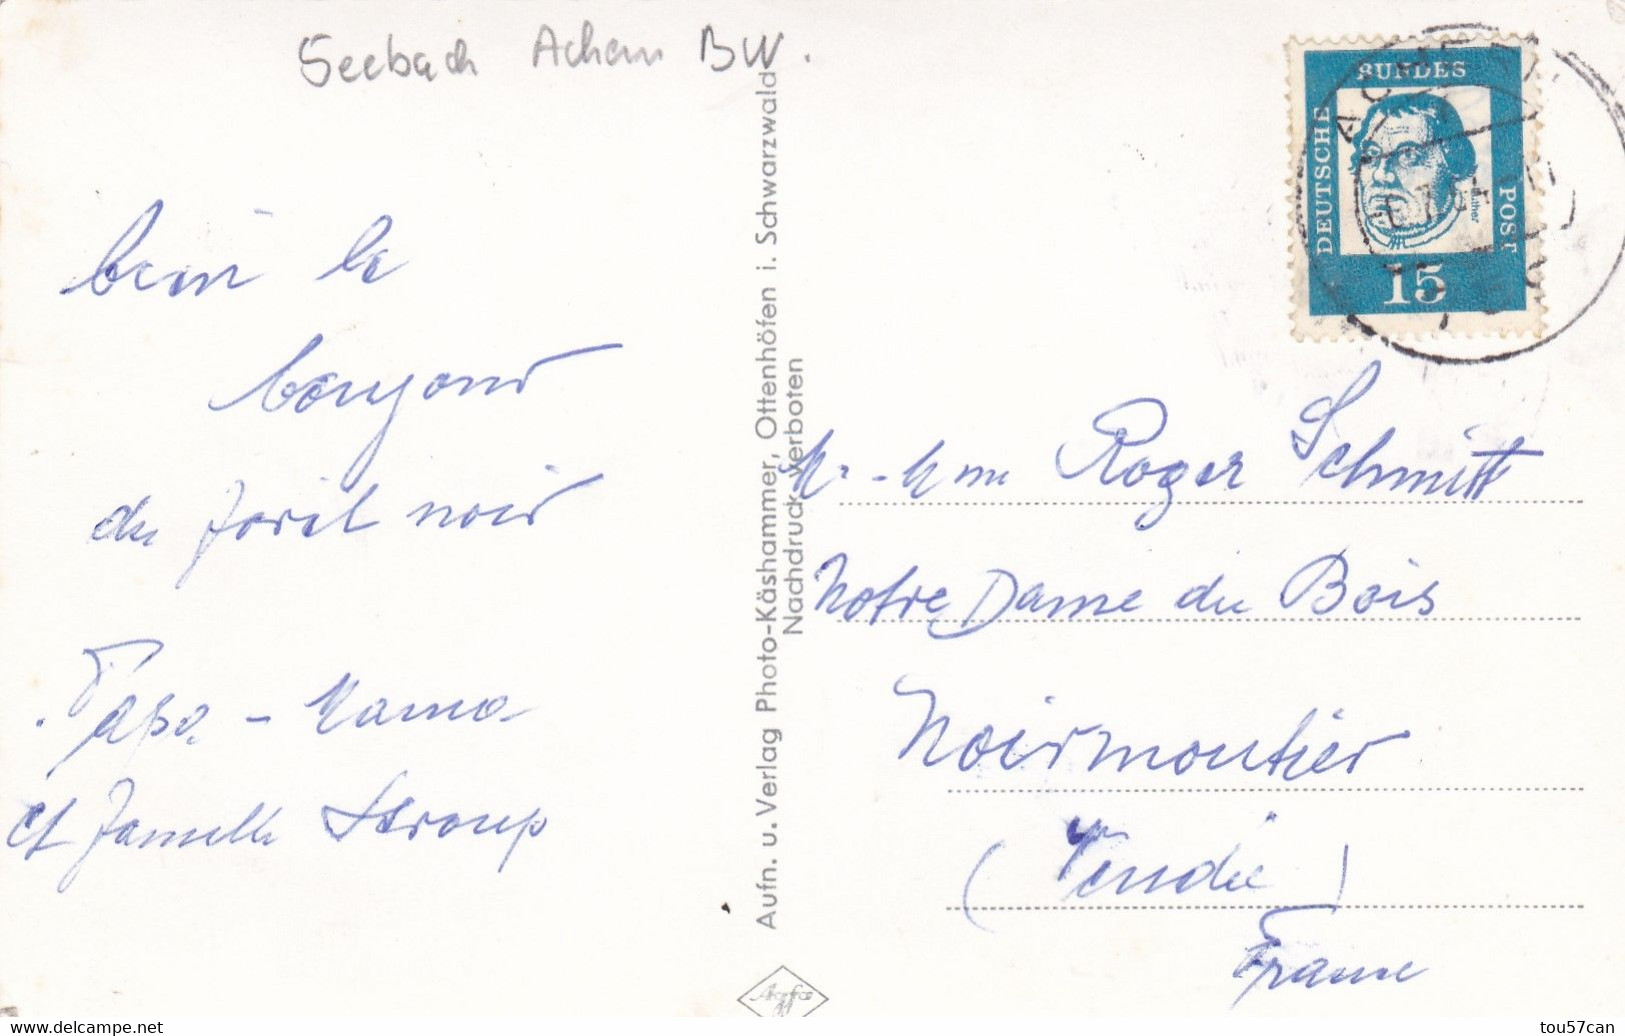 Seebach Achern BW.
bien le
bonjour
du forêt noir
Papa - Mama
et famille
Aufn. u. Verlag Photo-Käshammer, Ottenhöfen i. Schwarzwald
Nachdruck verboten
DEUTSCHE BUNDES POST
Luther
15
Mr. - Mme Roger Schmitt
Notre Dame du Bois
Noirmoutier
(Vendée)
France
Agfa
http://tou57can.delcampe.net
tou57can